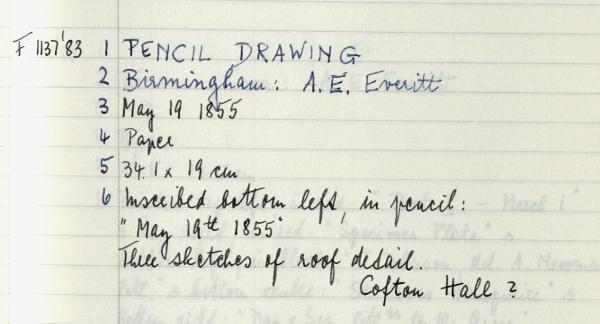 F 1137'83 1 PENCIL DRAWING
2 Birmingham: A. E. Everitt
3 May 19 1855
4 Paper
5 34.1 x 19 cm
6 Inscribed bottom left, in pencil:
"May 19th 1855"
Three sketches of roof detail.
Cofton Hall ?